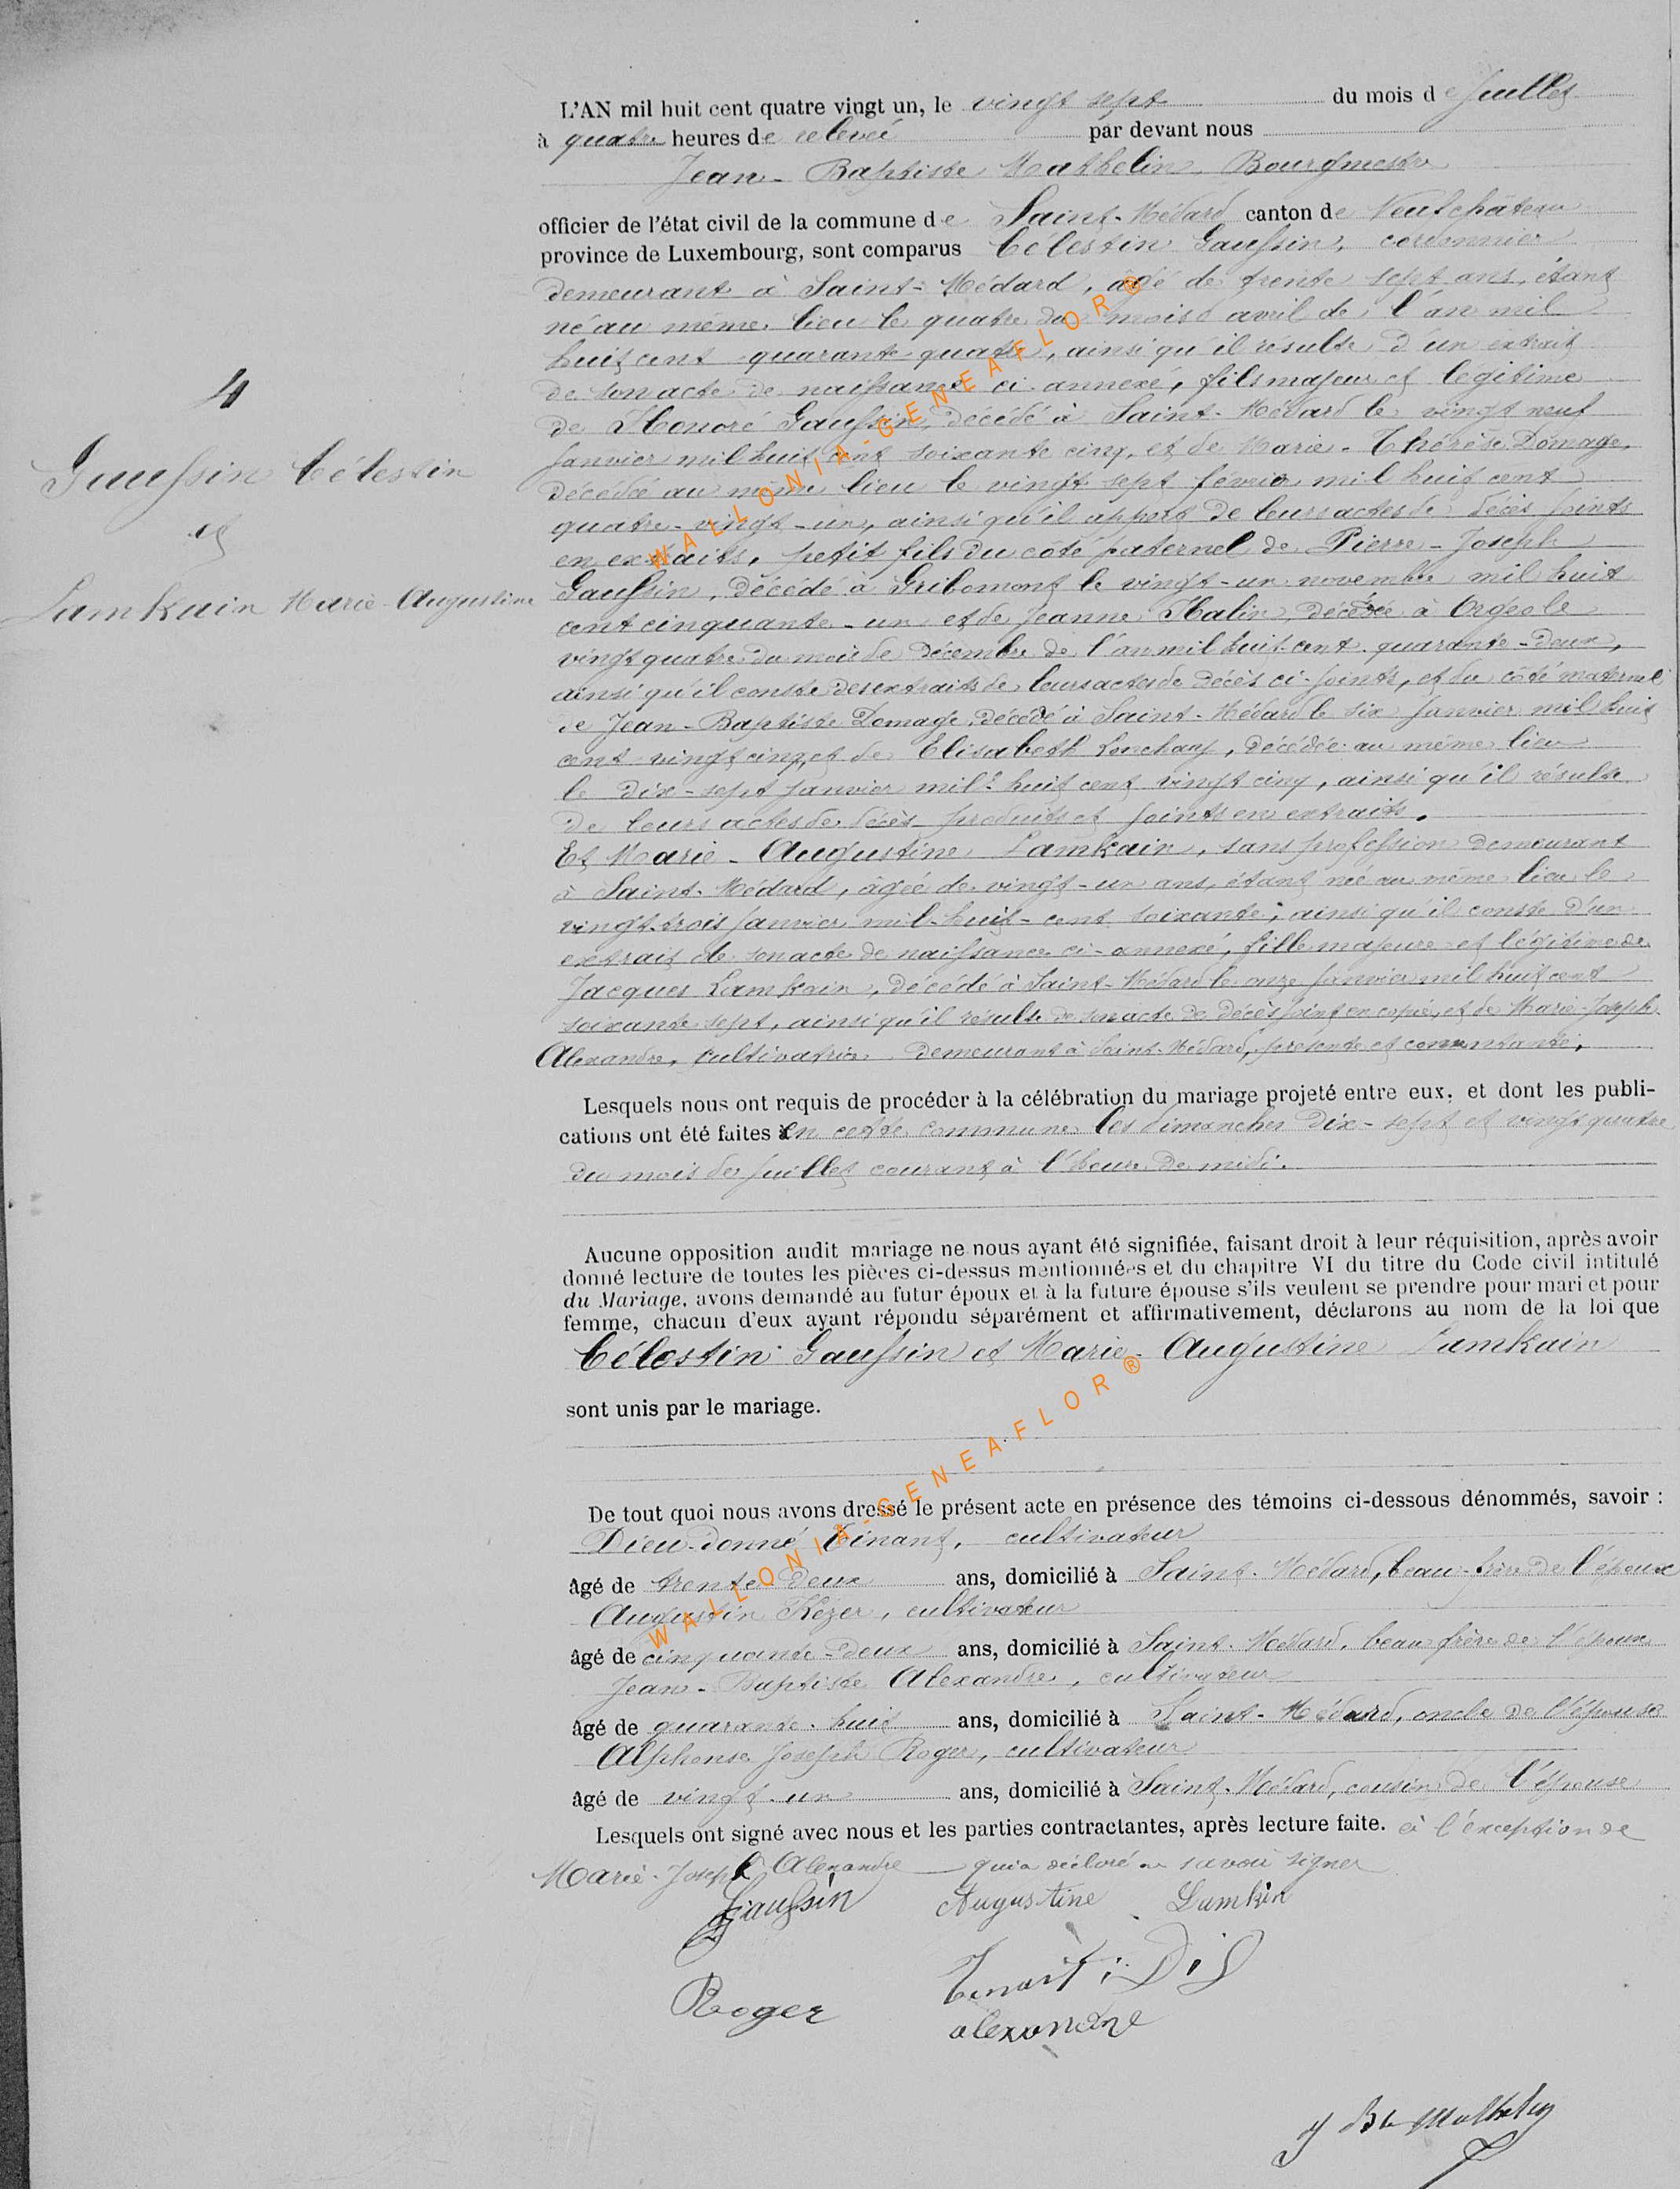 L'AN mil huit cent quatre vingt un, le vingt sept du mois de Juillet
à quatre heures de relevée par devant nous
Jean-Baptiste Mathelin Bourgmestre
officier de l'état civil de la commune de Saint-Médard canton de Neufchâteau
province de Luxembourg, sont comparus Célestin Gaussin, cordonnier
demeurant à Saint-Médard, âgé de trente sept ans, étant
né au même lieu le quatre du mois d avril de l'an mil
huit cent quarante quatre, ainsi qu'il résulte d'un extrait
de son acte de naissance ci-annexé, fils majeur et légitime
de Honoré Gaussin, décédé à Saint-Médard le vingt neuf
Janvier mil huit cent soixante cinq, et de Marie-Thérèse Domage,
décédée au même lieu le vingt sept février mil huit cent
quatre-vingt-un, ainsi qu'il appert de leurs actes de décès joints
en extraits, petit fils du côté paternel de Pierre-Joseph
Gaussin, décédé à Gribomont le vingt-un novembre mil huit
cent cinquante-un et de Jeanne Halin, décédée à Orgéo le
vingt quatre du mois de décembre de l'an mil huit cent quarante-deux,
ainsi qu'il conste des extraits de leurs actes de décès ci-joints, et du côté maternel
de Jean-Baptiste Domage, décédé à Saint-Médard le six Janvier mil huit
cent vingt cinq et de Elisabeth Lonchay, décédée au même lieu
le dix-sept Janvier mil huit cent vingt cinq, ainsi qu'il résulte
de leurs actes de décès produits et joints en extraits.
Et Marie-Augustine Lamkain, sans profession demeurant
à Saint-Médard, âgée de vingt-un ans, étant née au même lieu le
vingt-trois Janvier mil-huit-cent soixante, ainsi qu'il conste d'un
extrait de son acte de naissance ci-annexé, fille majeure et légitime de
Jacques Lamkain, décédé à Saint-Médard le onze Janvier mil huit cent
soixante sept, ainsi qu'il résulte de son acte de décès joint en copie, et de Marie-Joseph
Alexandre, cultivatrice demeurant à Saint-Médard, présente et consentante.
4
Gaussin Célestin
et
Lamkain Marie-Augustine
Lesquels nous ont requis de procéder à la célébration du mariage projeté entre eux, et dont les publi-
cations ont été faites en cette commune les dimanches dix-sept et vingt quatre
du mois de Juillet courant à l'heure de midi.
Aucune opposition audit mariage ne nous ayant été signifiée, faisant droit à leur réquisition, après avoir
donné lecture de toutes les pièces ci-dessus mentionnées et du chapitre VI du titre du Code civil intitulé
du Mariage, avons demandé au futur époux et à la future épouse s'ils veulent se prendre pour mari et pour
femme, chacun d'eux ayant répondu séparément et affirmativement, déclarons au nom de la loi que
Célestin Gaussin et Marie-Augustine Lamkain
sont unis par le mariage.
De tout quoi nous avons dressé le présent acte en présence des témoins ci-dessous dénommés, savoir :
Dieu-donné Tinant, cultivateur
âgé de trente deux ans, domicilié à Saint-Médard, beau-frère de l'époux
Augustin Kézer, cultivateur
âgé de cinquante-deux ans, domicilié à Saint-Médard, beau frère de l'époux
Jean-Baptiste Alexandre, cultivateur
âgé de quarante-huit ans, domicilié à Saint-Médard, oncle de l'épouse
Alphonse Joseph Roger, cultivateur
âgé de vingt-un ans, domicilié à Saint-Médard, cousin de l'épouse
Lesquels ont signé avec nous et les parties contractantes, après lecture faite. à l'exception de
Marie-Joseph Alexandre qui a déclaré ne savoir signer
Gaussin Augustine Lamkin
Roger
alexandre
J Bte Mathelin
WALLONIA-GENEAFLOR®
WALLONIA-GENEAFLOR®